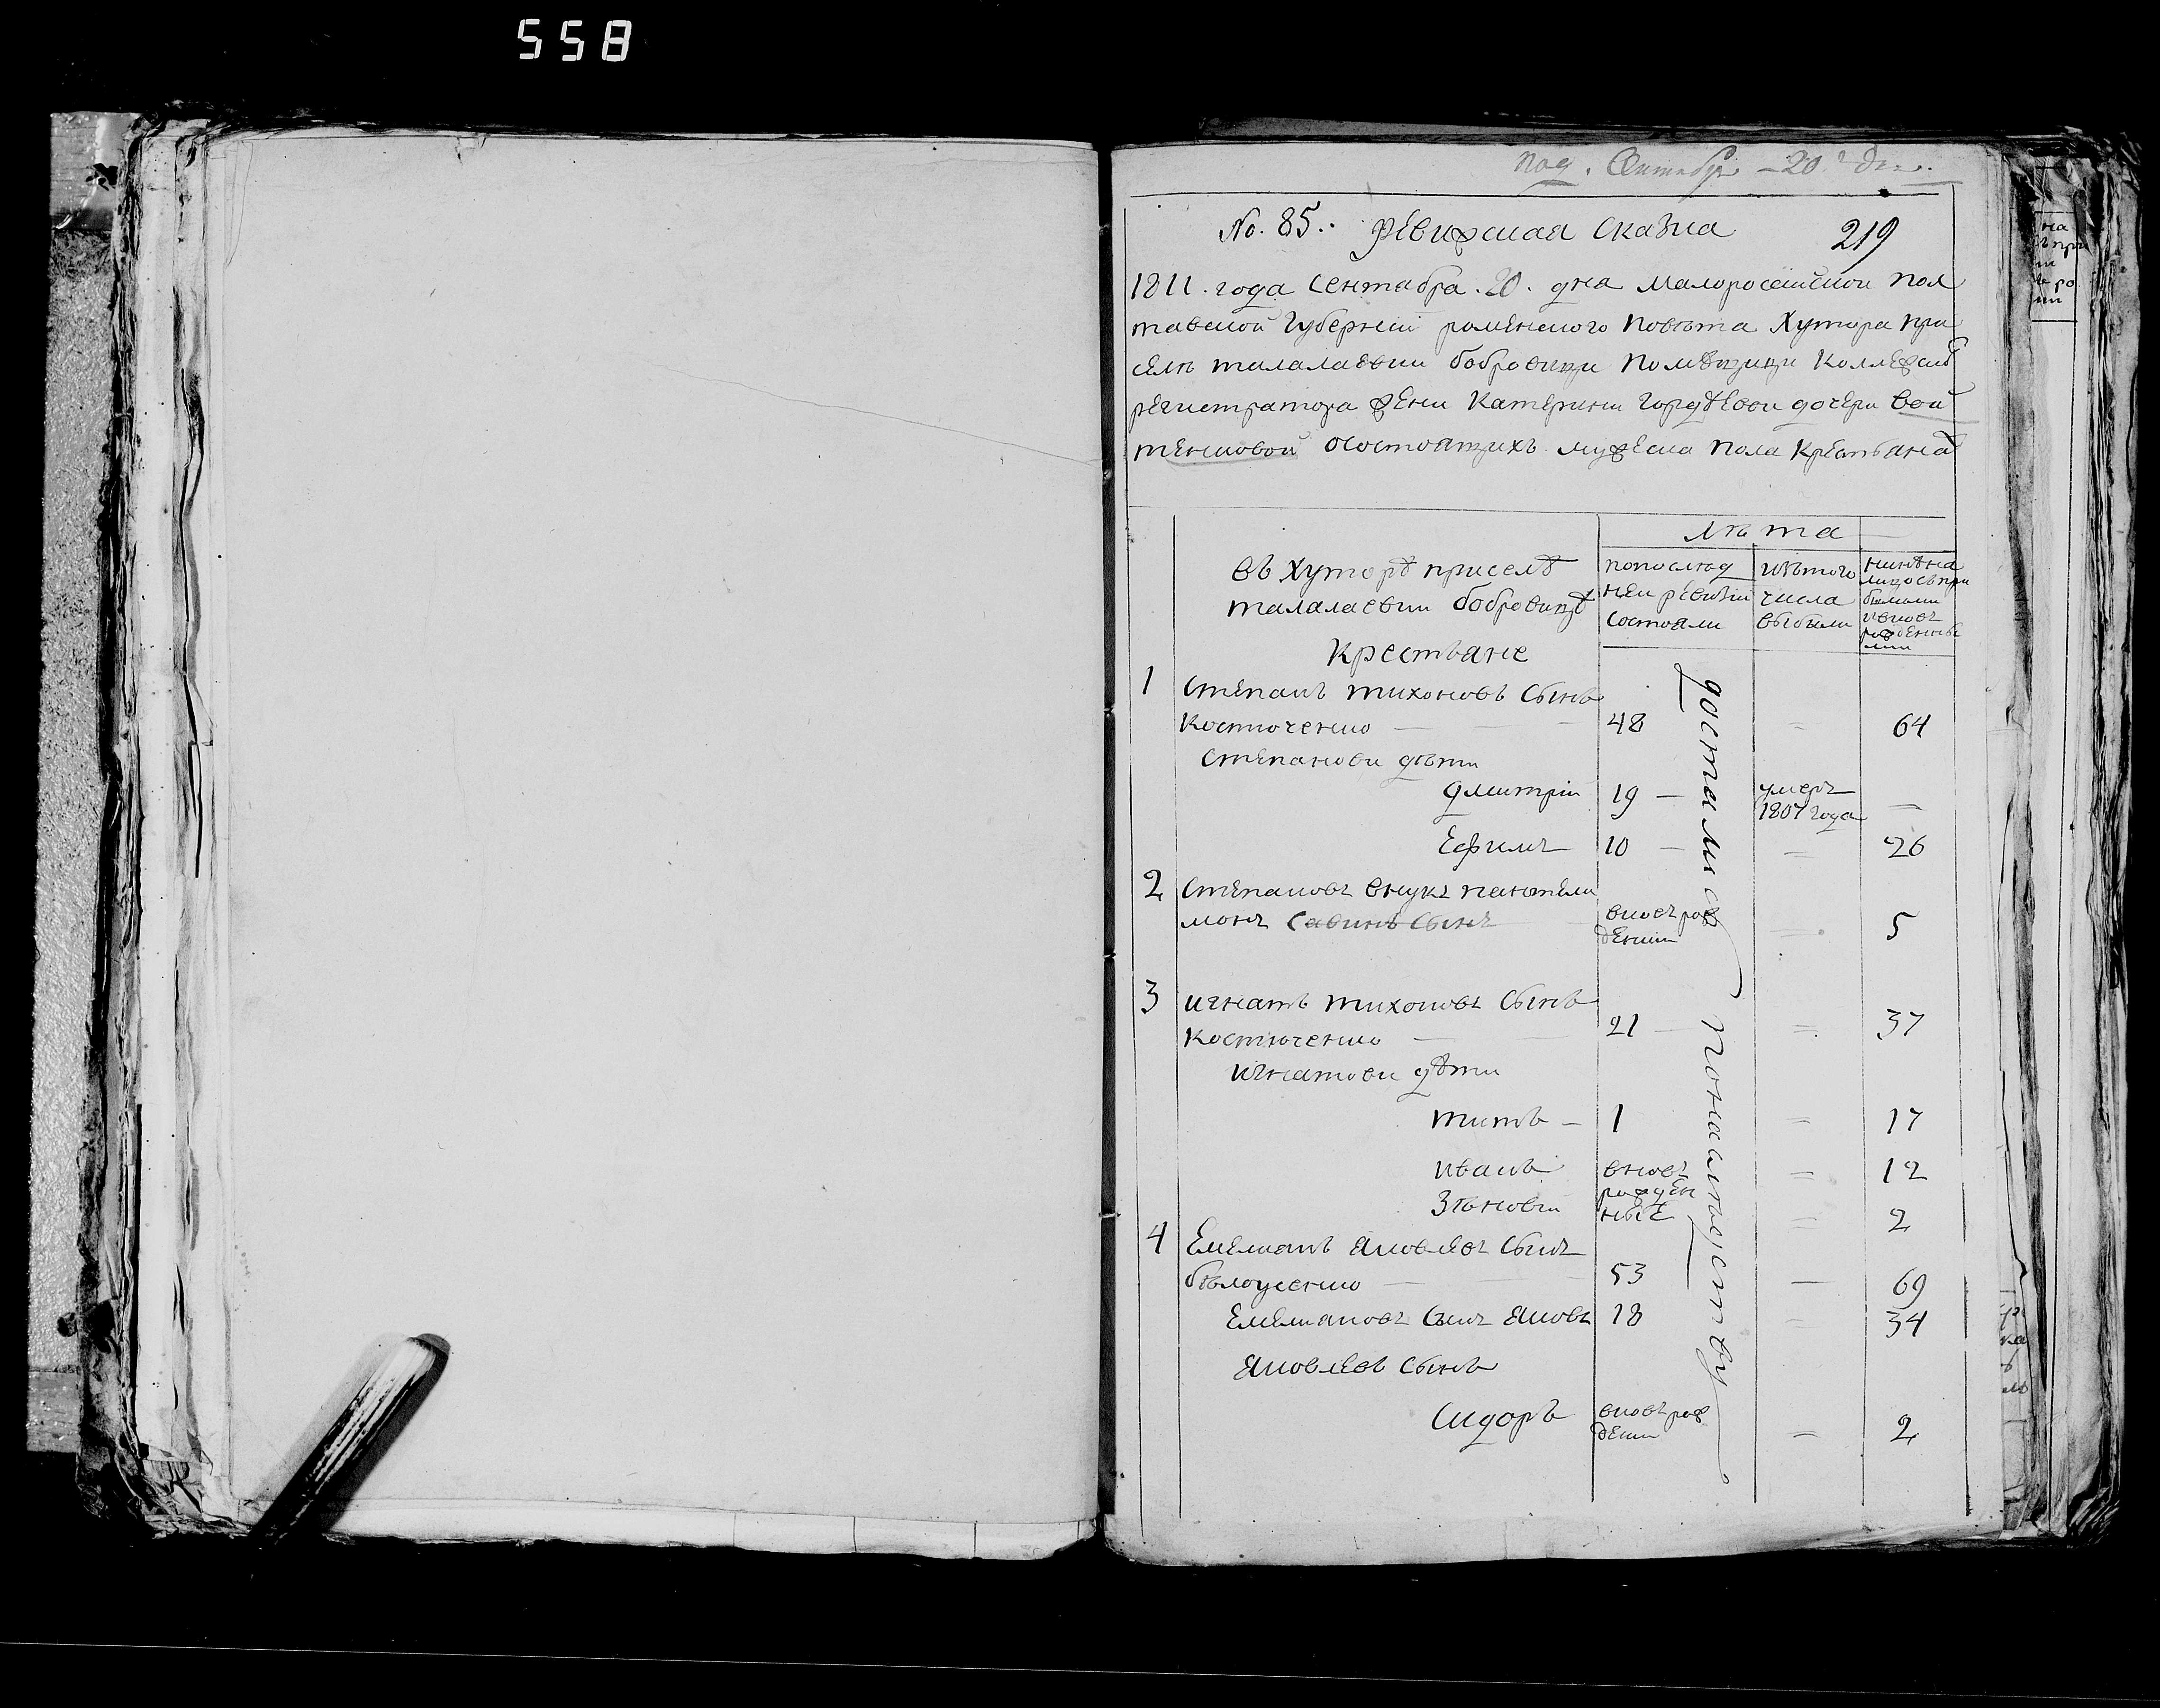 558
под. Сентября 20 дня.
No. 85. Ревижская сказка 219
1811. года сентабра. 20. дня малоросейской пол
тавской губернии роменского повѣта хутора при
селѣ талалаевки бобровици помѣщици коллежска
регистратора жени катерини гордѣевой дочери вой
тенковой осостоящихъ мужеска пола крестьянахъ
лѣта
въ хуторѣ приселѣ
талалаевки бобровицѣ
крестьяне
попослед
ней ревизіи
состояли
изътого
числа
выбили
нинѣ на
лицо съ при
былыми
ивновъ
рожденны
ми
1 степанъ тихоновъ сынъ
костюченко 48 64
степанови дѣти
дмитрій 19 умеръ
1807 года
Ефимъ 10 26
2 степановъ внукъ пантели
монъ савинъ сынъ вновъ рож
деній 5
3 игнатъ тихоновъ сынъ
костюченко 21 37
игнатови дѣти
титъ 1 17
иванъ вновъ
рожден
ные 12
Зѣновій 2
4 Емелианъ яковлевъ сынъ
бѣлоусенко 53 69
Емелиановъ сынъ яковъ 18 34
яковлевъ сынъ
сидоръ вновъ рож
деній 2
достались понаслѣдству